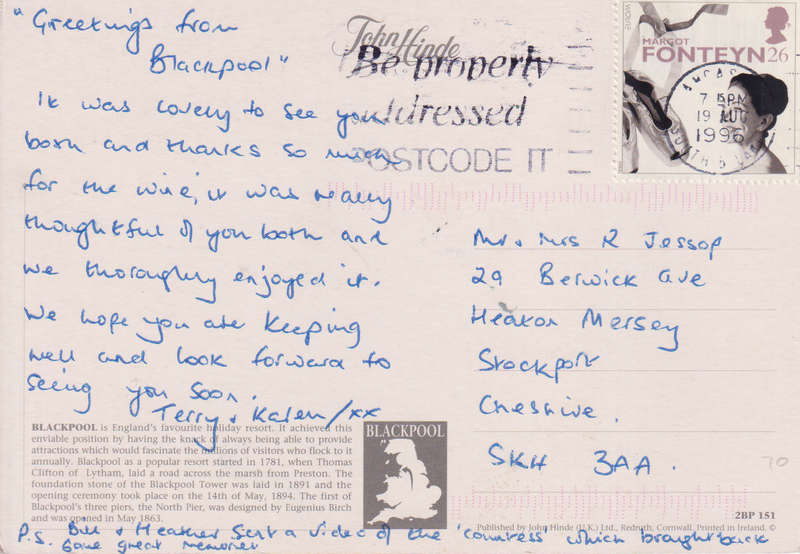 "Greetings from
Blackpool"
It was lovely to see you
both and thanks so much
for the wine, it was really
thoughtful of you both and
we thoroughly enjoyed it.
We hope you are keeping
well and look forward to
seeing you soon.
Terry & Karen/xx
P.S. Bill & Heather sent a video of the 'countess' which brought back
some great memories
John Hinde
Be properly
addressed
POSTCODE IT
MARGOT
FONTEYN 26
7 15PM
19 AUG
1996
Mr & Mrs R Jessop
29 Berwick Ave
Heaton Mersey
Stockport
Cheshire.
SK4 3AA.
70
BLACKPOOL is England's favourite holiday resort. It achieved this
enviable position by having the knack of always being able to provide
attractions which would fascinate the millions of visitors who flock to it
annually. Blackpool as a popular resort started in 1781, when Thomas
Clifton of Lytham, laid a road across the marsh from Preston. The
foundation stone of the Blackpool Tower was laid in 1891 and the
opening ceremony took place on the 14th of May, 1894. The first of
Blackpool's three piers, the North Pier, was designed by Eugenius Birch
and was opened in May 1863.
BLACKPOOL
2BP 151
Published by John Hinde (U.K.) Ltd., Redruth, Cornwall. Printed in Ireland. ©